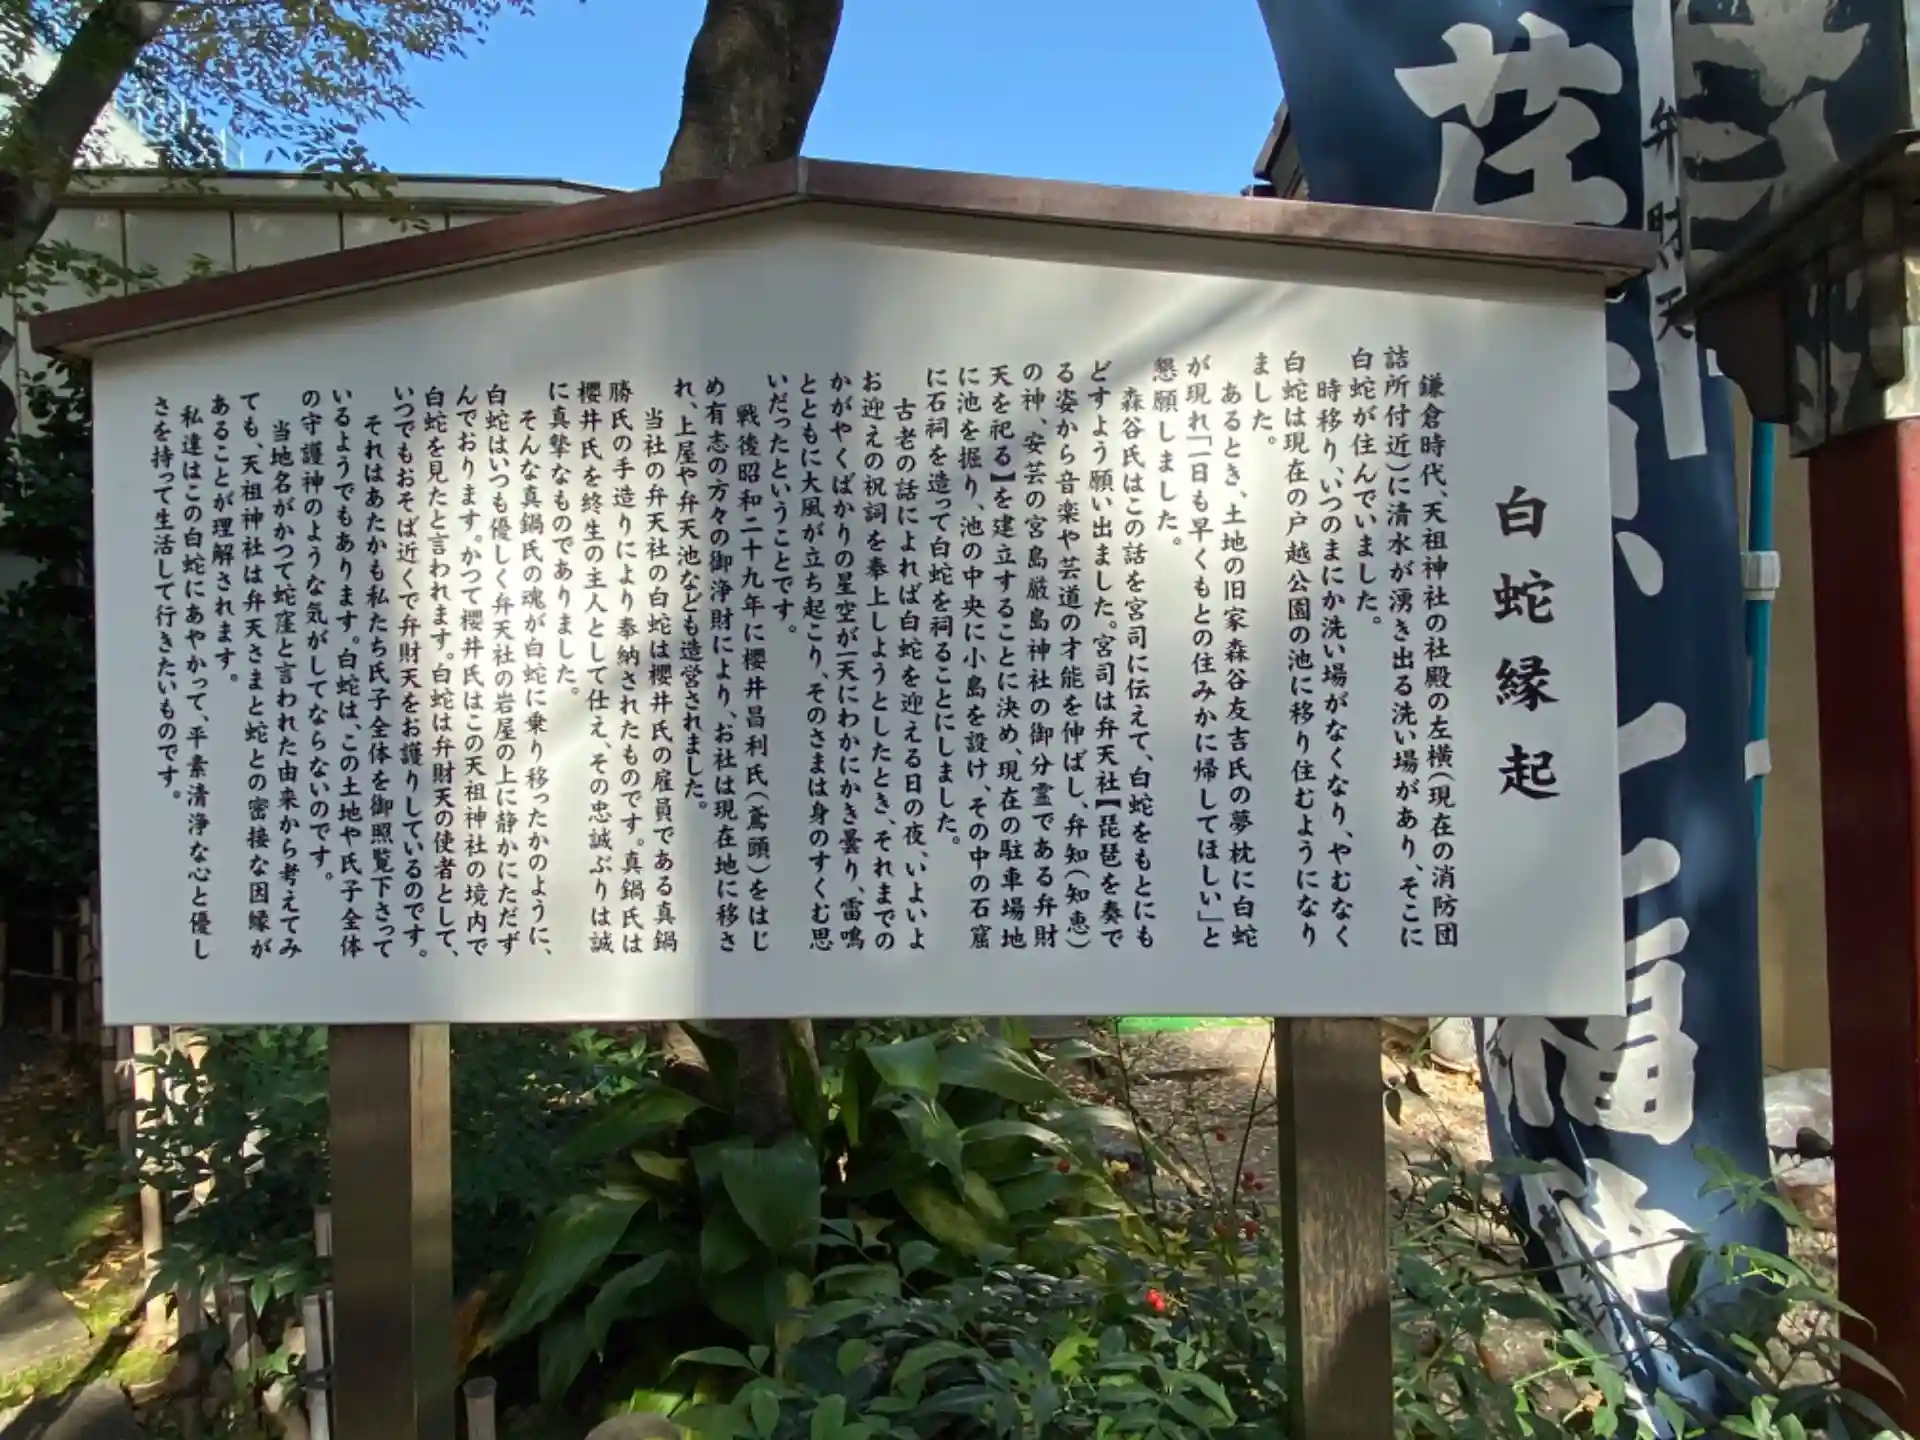 白蛇縁起
鎌倉時代、天祖神社の社殿の左横(現在の消防団
詰所付近)に清水が湧き出る洗い場があり、そこに
白蛇が住んでいました。
時移り、いつのまにか洗い場がなくなり、やむなく
白蛇は現在の戸越公園の池に移り住むようになり
ました。
あるとき、土地の旧家森谷友吉氏の夢枕に白蛇
が現れ「一日も早くもとの住みかに帰してほしい」と
懇願しました。
森谷氏はこの話を宮司に伝えて、白蛇をもとにも
どすよう願い出ました。宮司は弁天社【琵琶を奏で
る姿から音楽や芸道の才能を伸ばし、弁知(知恵)
の神、安芸の宮島厳島神社の御分霊である弁財
天を祀る】を建立することに決め、現在の駐車場地
に池を掘り、池の中央に小島を設け、その中の石窟
に石祠を造って白蛇を祠ることにしました。
古老の話によれば白蛇を迎える日の夜、いよいよ
お迎えの祝詞を奉上しようとしたとき、それまでの
かがやくばかりの星空が一天にわかにかき曇り、雷鳴
とともに大風が立ち起こり、そのさまは身のすくむ思
いだったということです。
戦後昭和二十九年に櫻井昌利氏(鳶頭)をはじ
め有志の方々の御浄財により、お社は現在地に移さ
れ、上屋や弁天池なども造営されました。
当社の弁天社の白蛇は櫻井氏の雇員である真鍋
勝氏の手造りにより奉納されたものです。真鍋氏は
櫻井氏を終生の主人として仕え、その忠誠ぶりは誠
に真摯なものでありました。
そんな真鍋氏の魂が白蛇に乗り移ったかのように、
白蛇はいつも優しく弁天社の岩屋の上に静かにただず
んでおります。かつて櫻井氏はこの天祖神社の境内で
白蛇を見たと言われます。白蛇は弁財天の使者として、
いつでもおそば近くで弁財天をお護りしているのです。
それはあたかも私たち氏子全体を御照覧下さって
いるようでもあります。白蛇は、この土地や氏子全体
の守護神のような気がしてならないのです。
当地名がかつて蛇窪と言われた由来から考えてみ
ても、天祖神社は弁天さまと蛇との密接な因縁が
あることが理解されます。
私達はこの白蛇にあやかって、平素清浄な心と優し
さを持って生活して行きたいものです。
弁財天